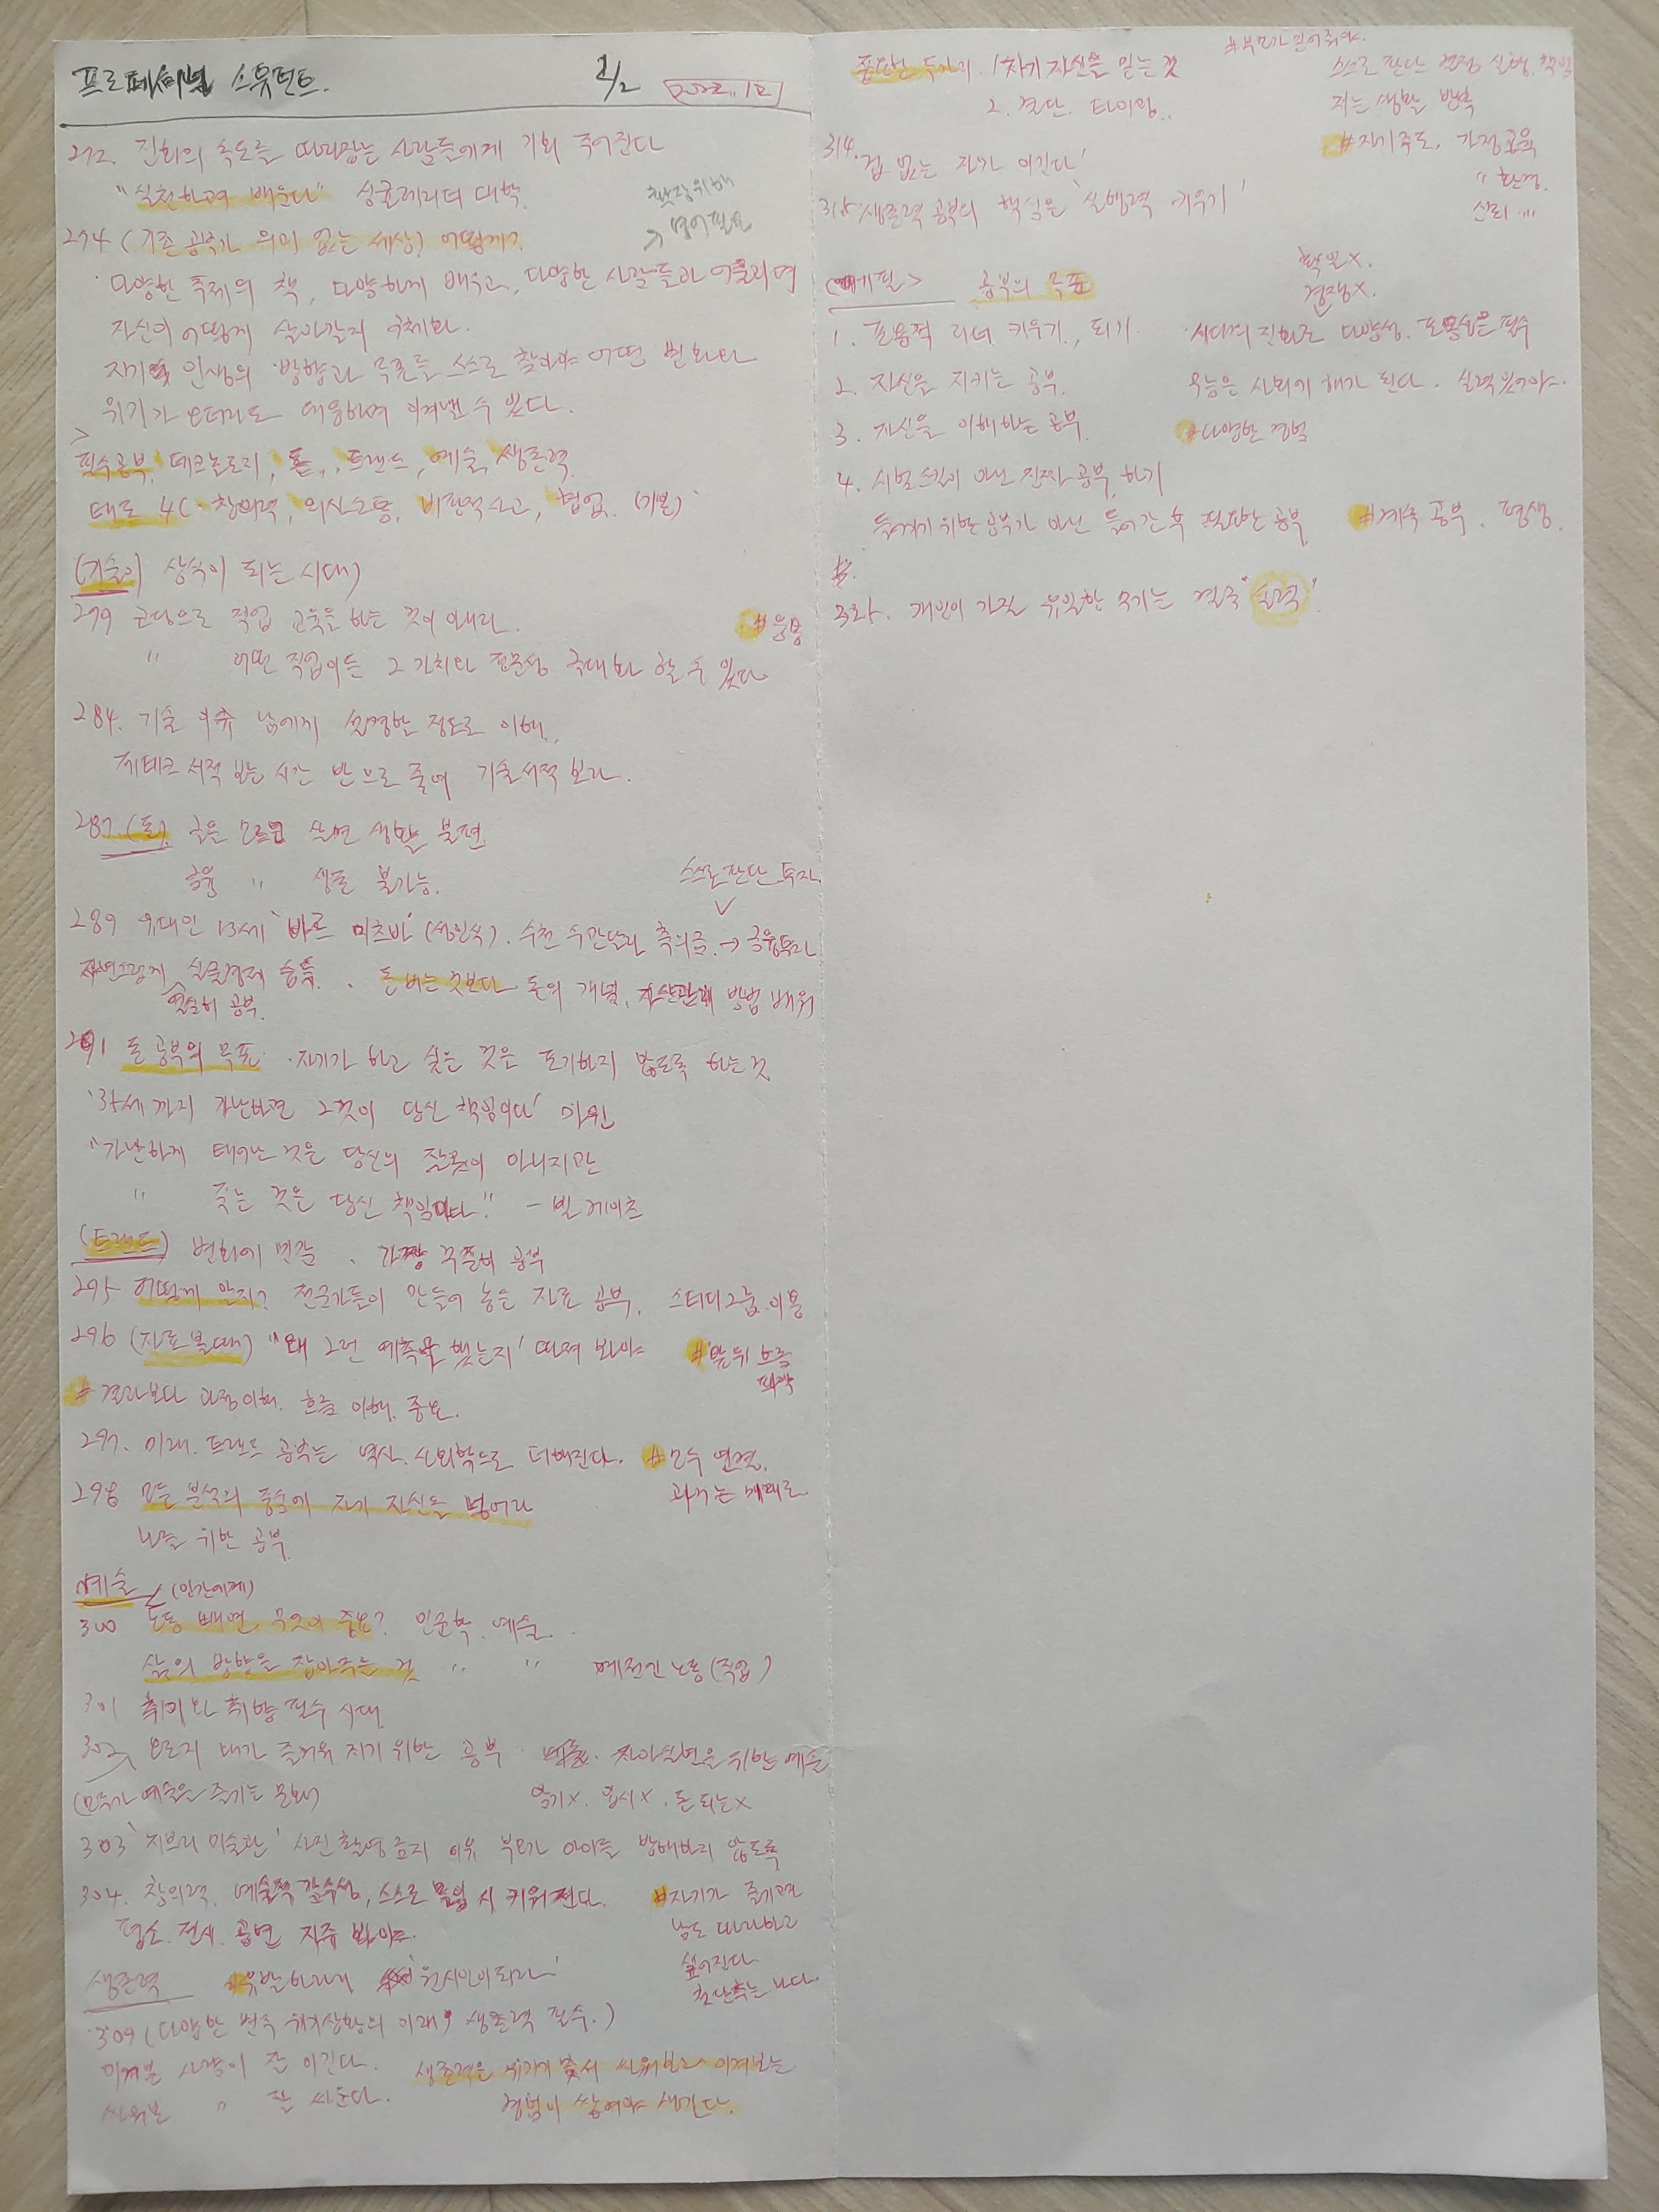 프로페셔널 스튜던트. 2/2 2022.12
272. 진화의 속도를 따라잡는 사람들에게 기회 주어진다
"실천하며 배운다" 싱귤래리티 대학.
확장위해
> 영어필요
274 (기존 공부가 의미 없는 세상) 어떻게?
· 다양한 주제의 책, 다양하게 배우고, 다양한 사람들과 어울리며
자신이 어떻게 살아갈지 구체화.
자기 인생의 방향과 목표를 스스로 찾아야 어떤 변화와
위기가 오더라도 대응하며 이겨낼 수 있다.
>
필수공부. 테크놀로지, 돈, 트랜드, 예술, 생존력
태도 4C. 창의력, 의사소통, 비판적사고, 협업. (기본)
(기술이 상식이 되는 시대)
279 코딩으로 직업 교육을 하는 것이 아니라. #응용
" 어떤 직업이든 그 가치와 전문성 극대화 할 수 있다.
284. 기술 이슈 남에게 설명할 정도로 이해.
재테크 서적 보는 시간 반으로 줄여 기술서적 보라.
287. (돈) 글을 모르고 살면 생활 불편
금융 " 생존 불가능.
스스로 판단 투자.
289 유대인 13세 '바르 미츠바' (성인식). 수천 수만달러 축의금. → 금융투자
자연스럽게 실물경제 습득. · 돈 버는 것보다 돈의 개념, 자산관리 방법 배워
열심히 공부.
291 돈 공부의 목표 · 자기가 하고 싶은 것을 포기하지 않도록 하는 것
'35세까지 가난하면 그것이 당신 책임이다' 마윈
"가난하게 태어난 것은 당신의 잘못이 아니지만
" 죽는 것은 당신 책임이다" - 빌 게이츠
(트랜드) 변화에 민감. 가장 꾸준히 공부
295 어떻게 알지? 전문가들이 만들어 놓은 자료 공부. 스터디그룹 이용
296 (자료 볼때) "왜 그런 예측을 했는지' 따져 봐야 #앞뒤 흐름
파악
# 결과보다 과정이해. 흐름 이해. 중요.
297. 미래. 트랜드 공부는 역사. 사회학으로 더해진다. #모두 연결.
과거는 미래로.
298 모든 분석의 중심에 자기 자신을 넣어라
나를 위한 공부.
예술 (인간에게)
300 노동 빼면 무엇이 중요? 인문학. 예술..
삶의 방향을 잡아주는 것 " " 예전엔 노동(직업)
301 취미와 취향 필수 시대.
302 오로지 내가 즐거워 지기 위한 공부. 예술. 자아실현을 위한 예술
(모두가 예술을 즐기는 문화) 암기X. 입시X. 돈 되는X
303 '지브리 미술관' 사진 촬영 금지 이유 부모가 아이들 방해하지 않도록
304. 창의력. 예술적 감수성, 스스로 몰입 시 키워진다. #자기가 즐기면
평소. 전시. 공연 자주 봐야. 남도 따라하고
싶어진다.
첫 단추는 나다.
생존력 #유발 하라리 '원시인이 되라'
309 (다양한 변수 위기상황의 미래, 생존력 필수.)
이겨본 사람이 잘 이긴다. 생존력은 위기에 맞서 싸워보고 이겨보는
싸워본 " 잘 싸운다. 경험이 쌓여야 생긴다.
필요한 두가지. 1 자기 자신을 믿는 것
2. 결단. 타이밍..
#부모가 믿어줘야.
스스로 판단 결정 실행. 책임
지는 생활 반복
#자기주도, 가정교육
" 환경.
신뢰 "
314. '겁 없는 자가 이긴다'
315. 생존력 공부의 핵심은 '실행력 키우기'
(에필> 공부의 목표
학벌X.
경쟁X.
1. 포용적 리더 키우기, 되기 · 시대의 진화로 다양성. 포용성은 필수
2. 자신을 지키는 공부. 무능은 사회에 해가 된다. 실력 있어야.
3. 자신을 이해하는 공부. #다양한 경험
4. 시험 스킬이 아닌 진짜 공부 하기
들어가기 위한 공부가 아닌 들어간 후 필요한 공부 #계속 공부. 평생.
325. 개인이 가질 유일한 무기는 결국 "실력".